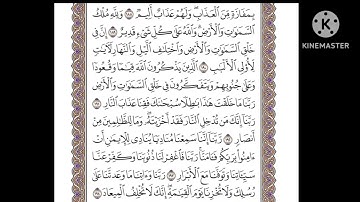 بِمَفَازَةٍ مِّنَ ٱلْعَذَابِ ۖ وَلَهُمْ عَذَابٌ أَلِيمٌ ١٨٨ وَلِلَّهِ مُلْكُ
ٱلسَّمَٰوَٰتِ وَٱلْأَرْضِ ۗ وَٱللَّهُ عَلَىٰ كُلِّ شَىْءٍ قَدِيرٌ ١٨٩ إِنَّ فِى
خَلْقِ ٱلسَّمَٰوَٰتِ وَٱلْأَرْضِ وَٱخْتِلَٰفِ ٱلَّيْلِ وَٱلنَّهَارِ لَءَايَٰتٍ
لِّأُو۟لِى ٱلْأَلْبَٰبِ ١٩٠ ٱلَّذِينَ يَذْكُرُونَ ٱللَّهَ قِيَٰمًا وَقُعُودًا
وَعَلَىٰ جُنُوبِهِمْ وَيَتَفَكَّرُونَ فِى خَلْقِ ٱلسَّمَٰوَٰتِ وَٱلْأَرْضِ
رَبَّنَا مَا خَلَقْتَ هَٰذَا بَٰطِلًا سُبْحَٰنَكَ فَقِنَا عَذَابَ ٱلنَّارِ ١٩١
رَبَّنَآ إِنَّكَ مَن تُدْخِلِ ٱلنَّارَ فَقَدْ أَخْزَيْتَهُۥ ۖ وَمَا لِلظَّٰلِمِينَ مِنْ
أَنصَارٍ ١٩٢ رَّبَّنَآ إِنَّنَا سَمِعْنَا مُنَادِيًا يُنَادِى لِلْإِيمَٰنِ أَنْ
ءَامِنُوا۟ بِرَبِّكُمْ فَـَٔامَنَّا ۚ رَبَّنَا فَٱغْفِرْ لَنَا ذُنُوبَنَا وَكَفِّرْ عَنَّا
سَيِّـَٔاتِنَا وَتَوَفَّنَا مَعَ ٱلْأَبْرَارِ ١٩٣ رَبَّنَا وَءَاتِنَا مَا وَعَدتَّنَا عَلَىٰ
رُسُلِكَ وَلَا تُخْزِنَا يَوْمَ ٱلْقِيَٰمَةِ ۗ إِنَّكَ لَا تُخْلِفُ ٱلْمِيعَادَ ١٩٤
Made with
KINEMASTER